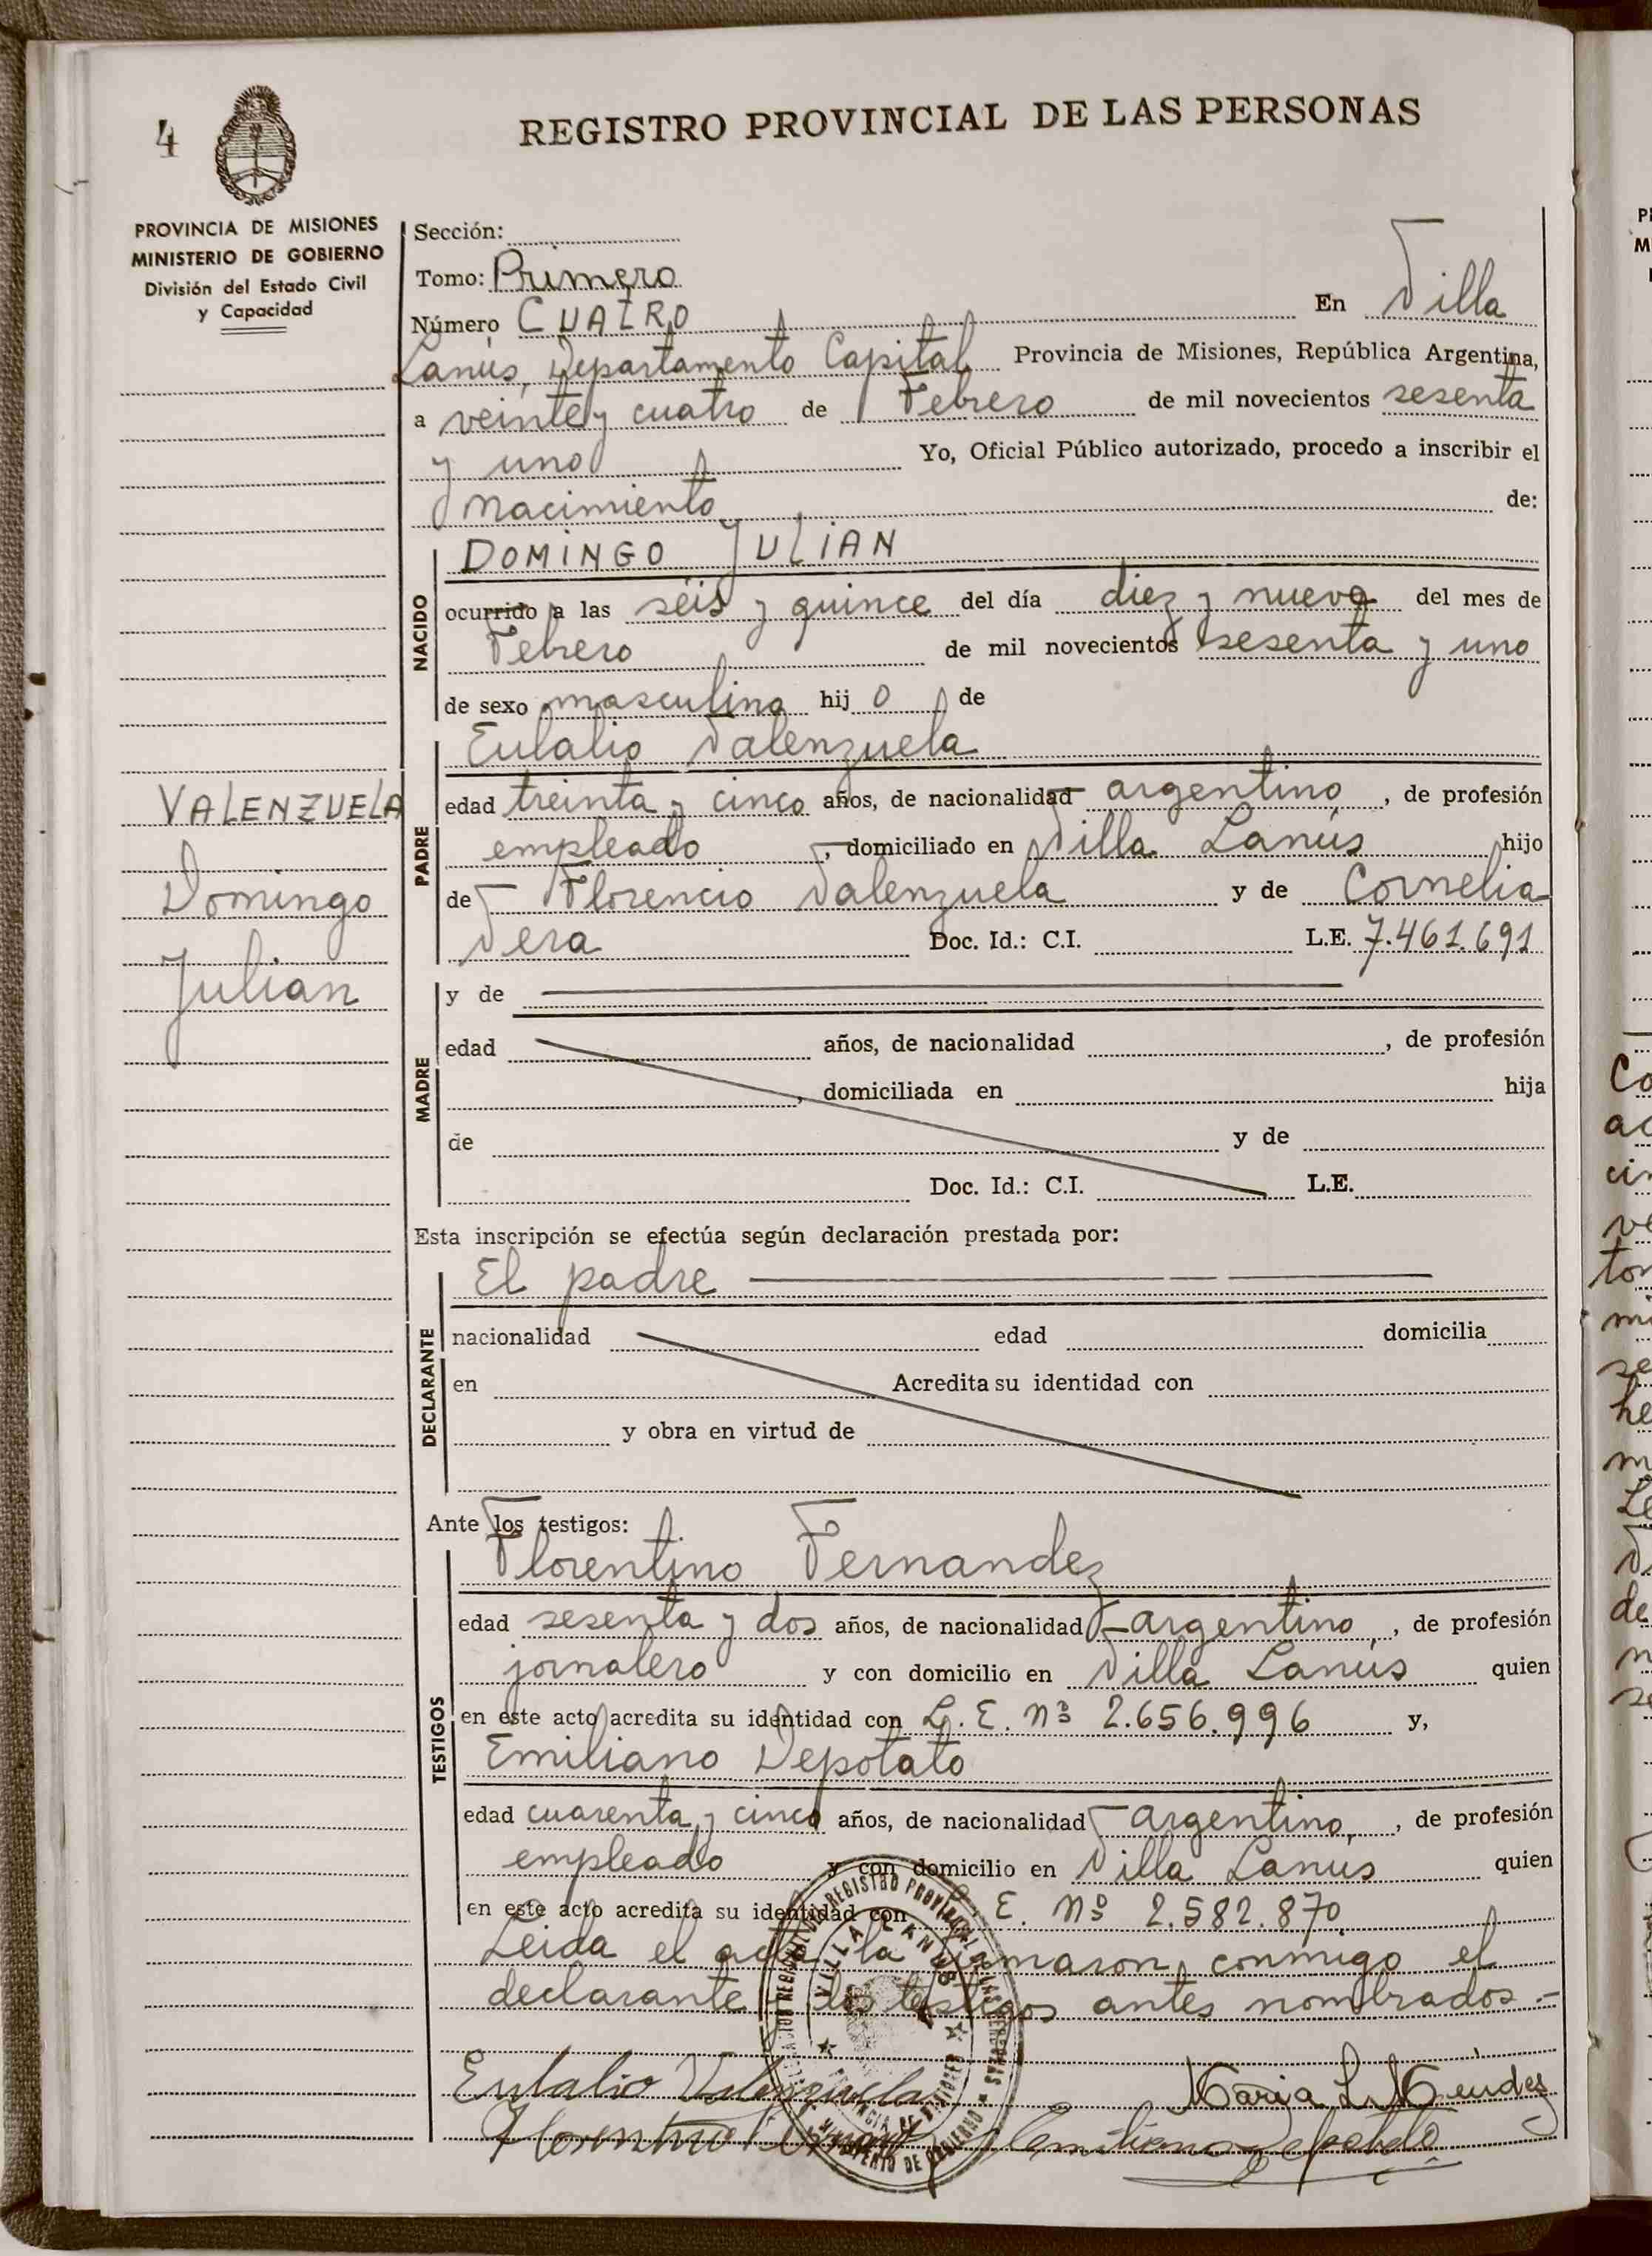 4
REGISTRO PROVINCIAL DE LAS PERSONAS
PROVINCIA DE MISIONES
MINISTERIO DE GOBIERNO
División del Estado Civil
y Capacidad
VALENZUELA
Domingo
Julian
Sección:
Tomo: Primero
Número CUATRO En Villa
Lanús, Departamento Capital Provincia de Misiones, República Argentina,
a veinte y cuatro de Febrero de mil novecientos sesenta
y uno Yo, Oficial Público autorizado, procedo a inscribir el
nacimiento de:
NACIDO
DOMINGO JULIAN
ocurrido a las séis y quince del día diez y nueve del mes de
Febrero de mil novecientos sesenta y uno
de sexo masculino hij o de
PADRE
Eulalio Valenzuela
edad treinta y cinco años, de nacionalidad argentino, de profesión
empleado, domiciliado en Villa Lanús hijo
de Florencio Valenzuela y de Cornelia
Vera Doc. Id.: C.I. L.E. 7.461.691
MADRE
y de
edad años, de nacionalidad , de profesión
, domiciliada en hija
de y de
Doc. Id.: C.I. L.E.
Esta inscripción se efectúa según declaración prestada por:
DECLARANTE
El padre
nacionalidad edad domicilia
en Acredita su identidad con
y obra en virtud de
Ante los testigos:
TESTIGOS
Florentino Fernandez
edad sesenta y dos años, de nacionalidad argentino, de profesión
jornalero y con domicilio en Villa Lanús quien
en este acto acredita su identidad con L.E. nº 2.656.996 y,
Emiliano Depotato
edad cuarenta y cinco años, de nacionalidad argentino, de profesión
empleado y con domicilio en Villa Lanus quien
en este acto acredita su identidad con L. E. Nº 2.582.870
Leida el acta la firmaron conmigo el
declarante y los testigos antes nombrados.-
VILLA LANUS
Eulalio Valenzuela
Maria L. Mendez